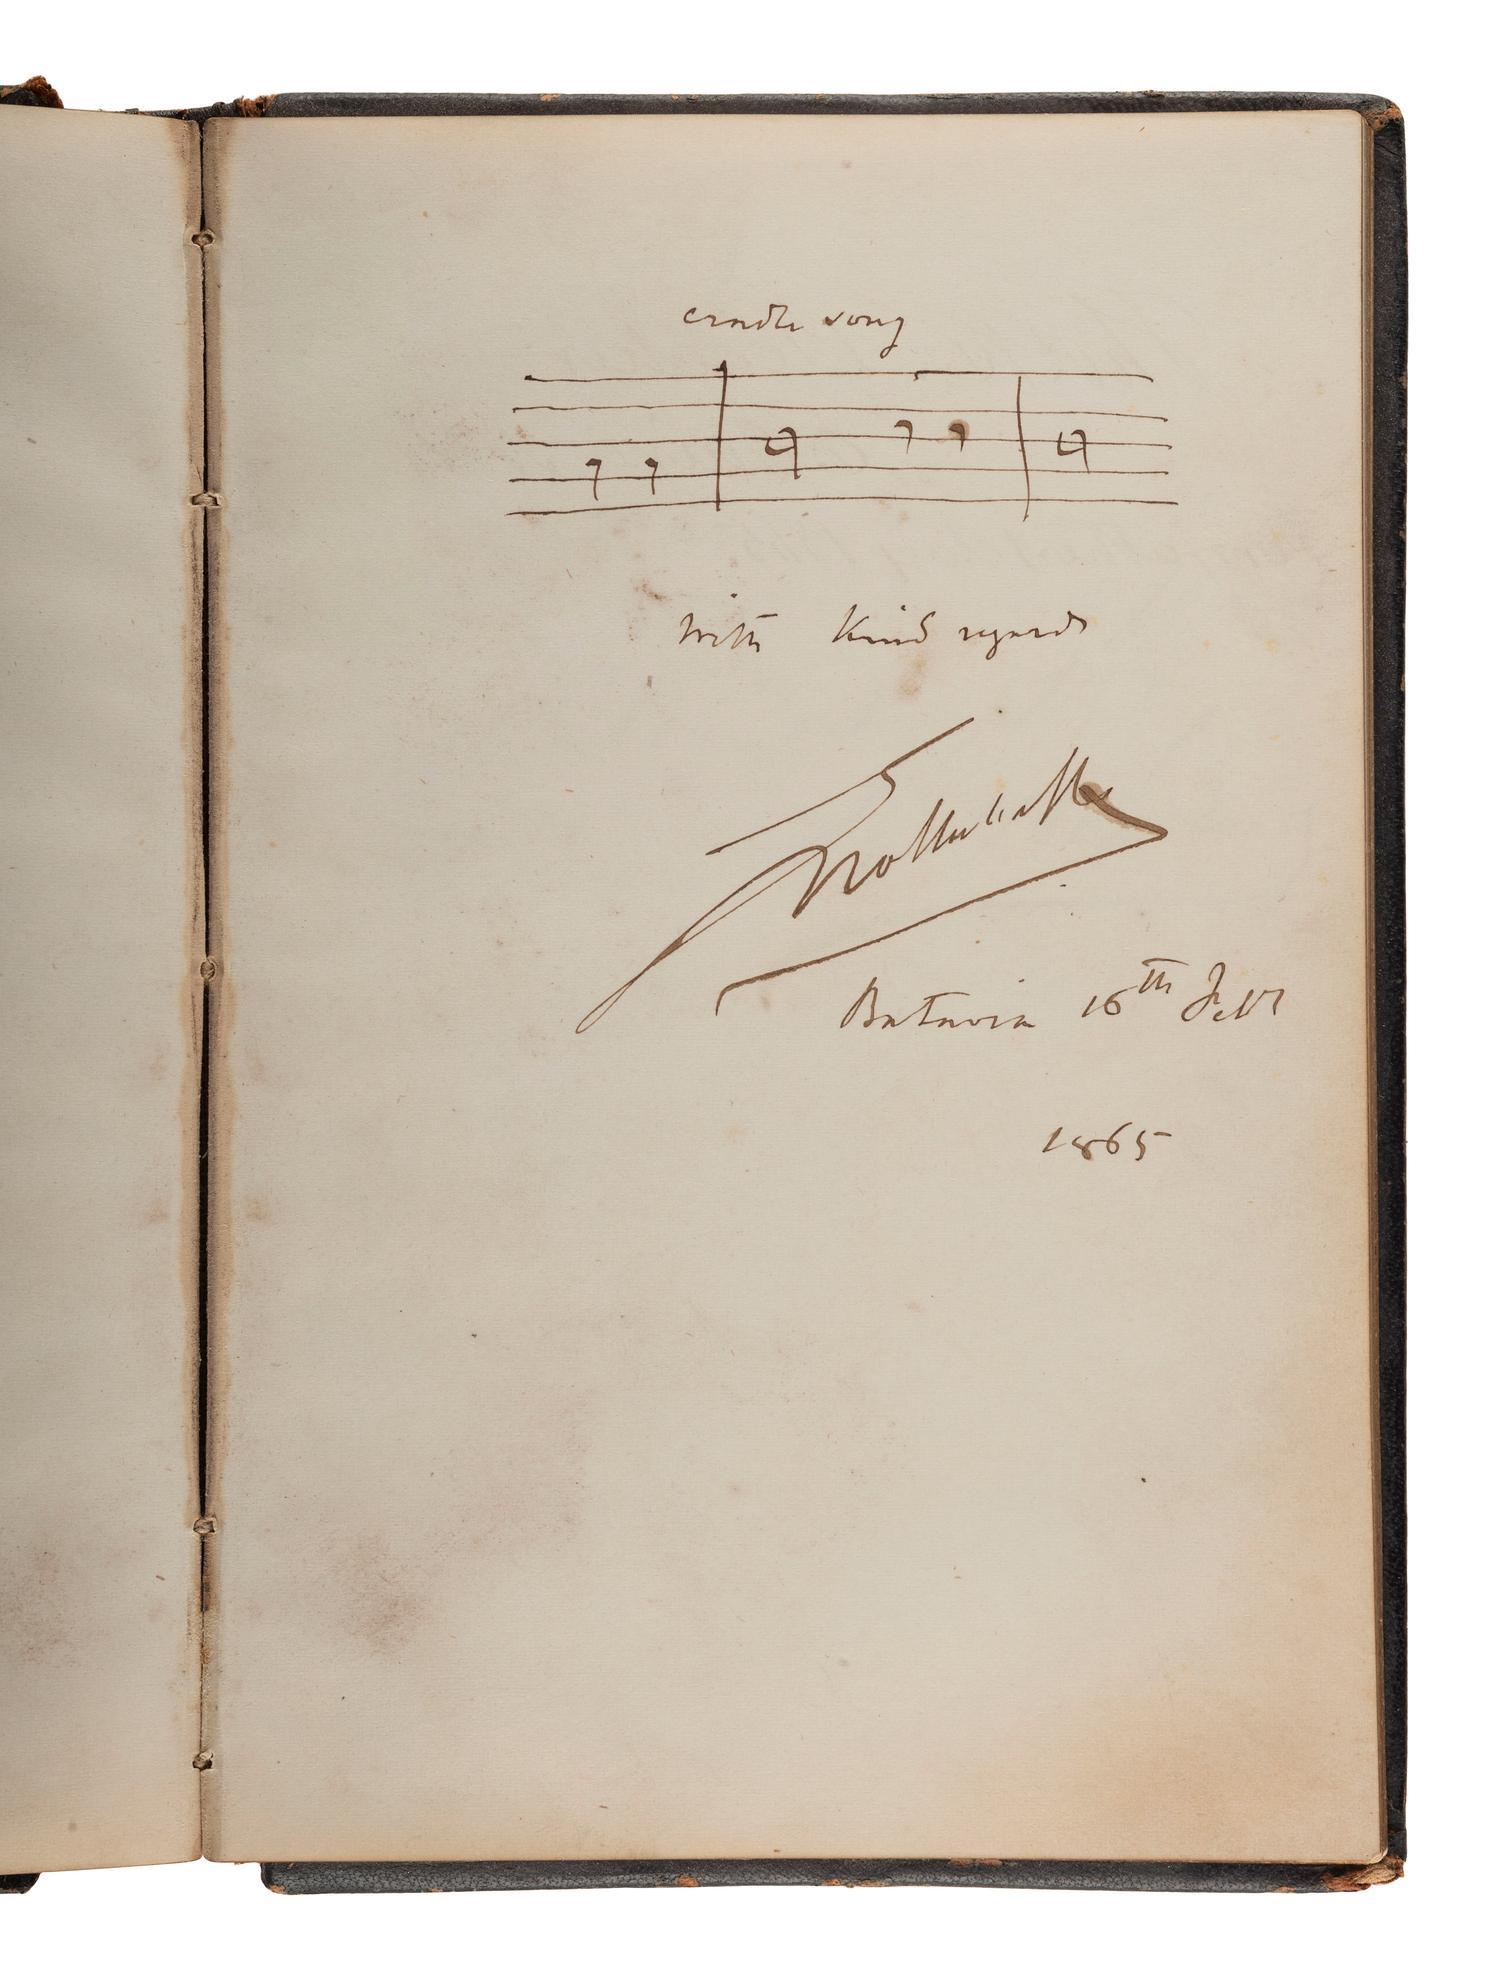 cradle song
With Kind regards
Batavia 16th Feb
1865